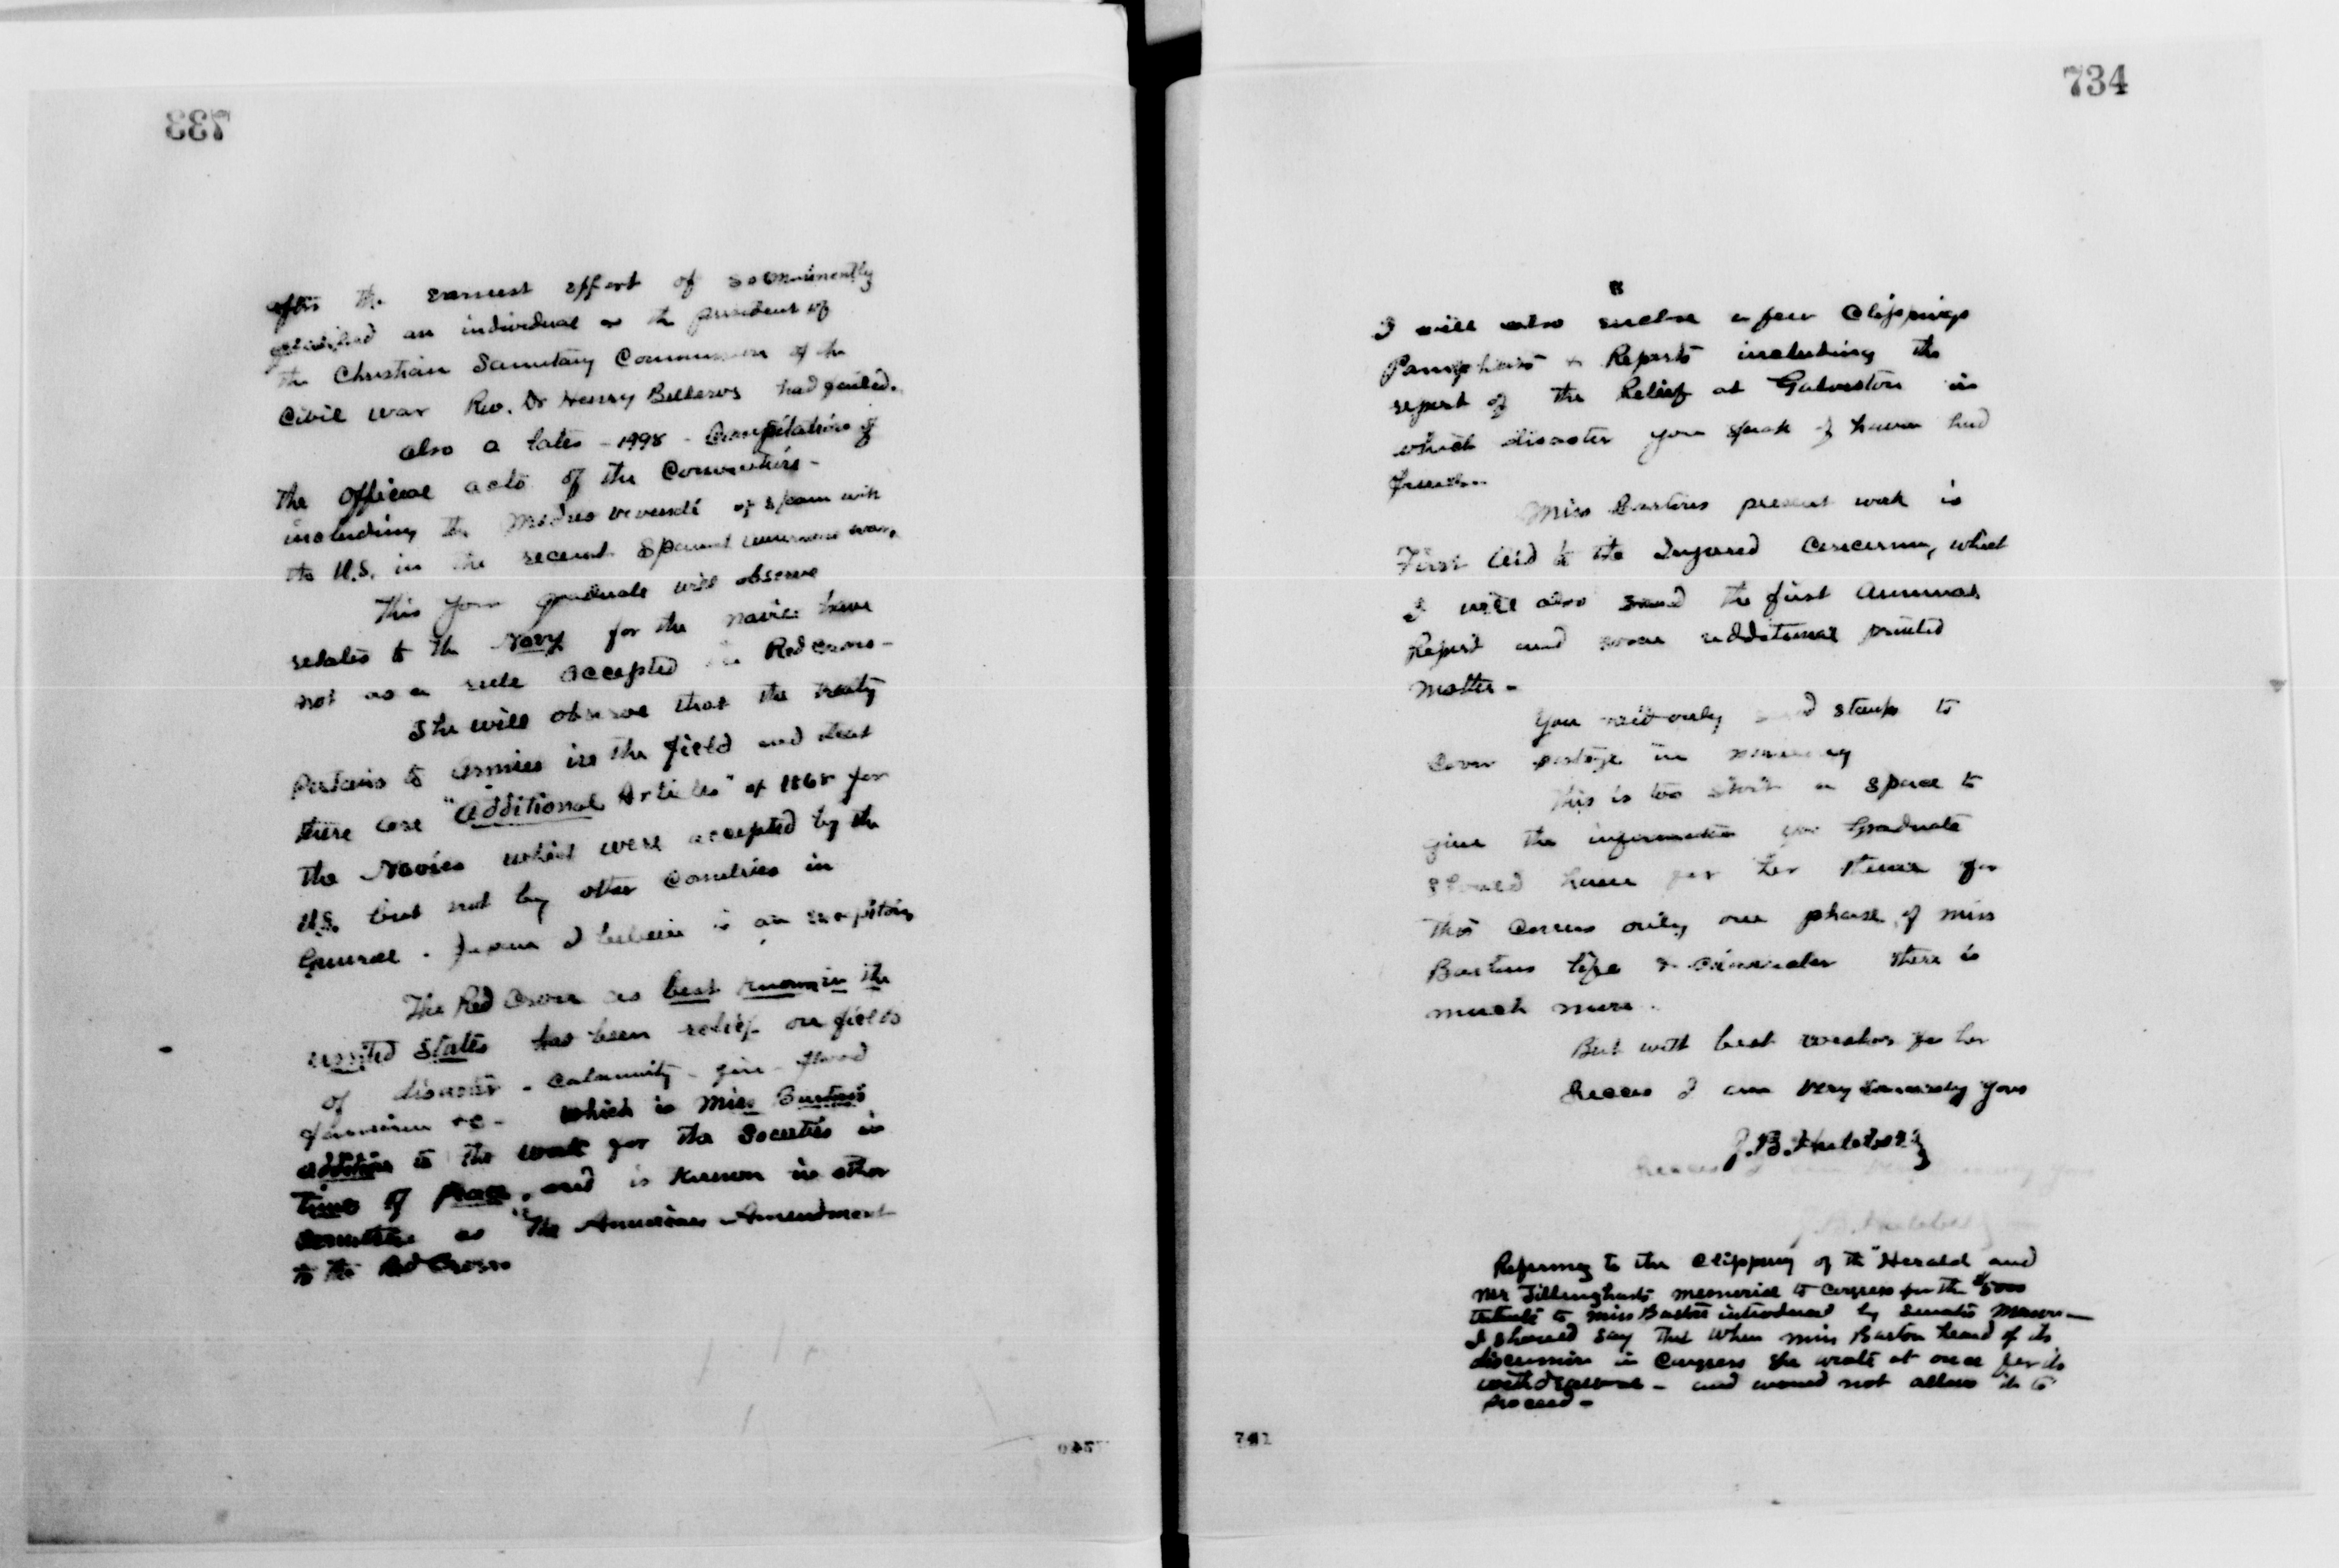 733
after the earnest effort of so eminently
qualified an individual as the president of
the Christian Sanitary Commission of the
Civil War Rev. Dr Henry Bellows had failed.
also a later - 1898 - Compilation of
the Official acts of the Conventions -
including the Modus vivendi of Spain with
the U.S. in the recent Spanish American war.
This your graduate will observe
relates to the Navy for the navies have
not as a rule accepted the Red Cross -
She will observe that the treaty
pertains to armies in the field and that
there are "Additional Articles" of 1868 for
the Navies which were accepted by the
U.S. but not by other Countries in
General. Japan I believe is an exception
The Red Cross as best known in the
United States has been relief on fields
of disaster - calamity - fire - flood
famine &c - which is Miss Barton's
addition to the work for the Societies in
time of peace, and is known in other
as "The American Amendment
to the Red Cross
740
734
I will also enclose a few Clippings
Pamphlets & Reports including the
report of the Relief at Galveston in
which disaster you speak of having had
friends.
Miss Bartons present work is
First Aid to the Injured Concerning which
I will also send the first Annual
Report and some additional printed
matter -
You need only send stamps to
cover postage in
This is too short a space to
give the information your Graduate
should have for her theme for
this covers only one phase of Miss
Bartons life & character there is
much more.
But with best wishes for her
success I am Very Sincerely Yours
J. B. Hubbell
Referring to the Clipping of the "Herald and
Mr Tillinghasts memorial to Congress for the $5000
tribute to Miss Barton introduced by Senator
I should say that when Miss Barton heard of its
discussion in Congress she wrote at once for its
withdrawal - and would not allow it to
proceed -
741